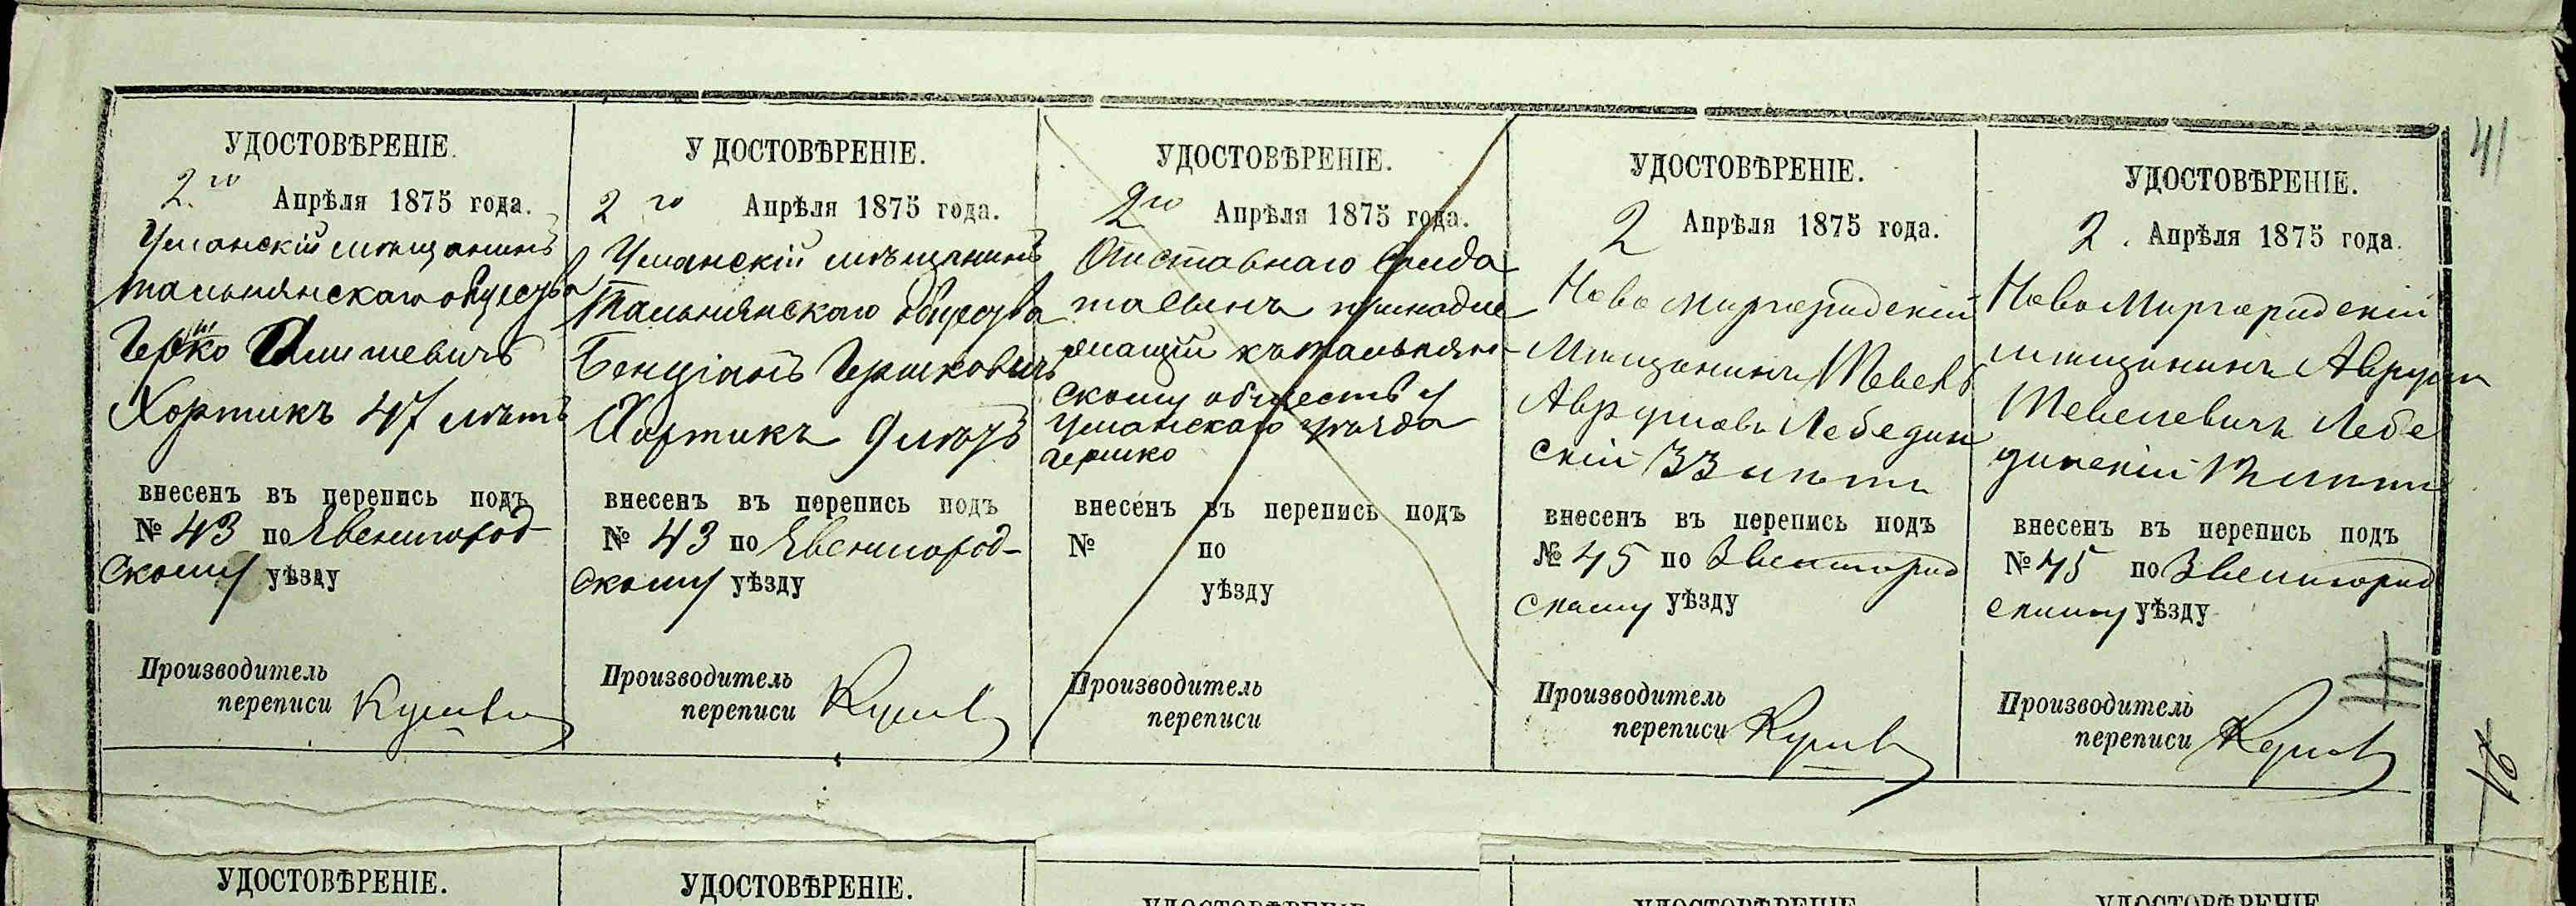 41
УДОСТОВѢРЕНІЕ.
2го Апрѣля 1875 года.
Уманскій мѣщанинъ
тальнянскаго общества
Гершко
Хортикъ 47 лѣтъ
внесенъ въ перепись подъ
№ 43 по Звенигород-
скому уѣзду
Производитель
переписи
УДОСТОВѢРЕНІЕ.
2го Апрѣля 1875 года.
Уманскій мѣщанинъ
Тальнянскаго общества
Бенціанъ Гершковичъ
Хортикъ 9 лѣтъ
внесенъ въ перепись подъ
№ 43 по Звенигород-
скому уѣзду
Производитель
переписи
УДОСТОВѢРЕНІЕ.
2го Апрѣля 1875 года.
Отставнаго Солда
та сынъ принадле
жащій къ тальнян-
скому обществу
Уманскаго уѣзда
Гершко
внесенъ въ перепись подъ
№ по
уѣзду
Производитель
переписи
УДОСТОВѢРЕНІЕ.
2 Апрѣля 1875 года.
Ново Миргородскій
Мѣщанинъ Шевель
Аврумовъ Лебедин
скій 33 лѣтъ
внесенъ въ перепись подъ
№ 45 по Звенигород
скому уѣзду
Производитель
переписи
УДОСТОВѢРЕНІЕ.
2. Апрѣля 1875 года.
Ново Миргородскій
мѣщанинъ Аврумъ
Шевелевичъ Лебе
динскій лѣтъ
внесенъ въ перепись подъ
№ 45 по Звенигород
скому уѣзду
Производитель
переписи
УДОСТОВѢРЕНІЕ.
УДОСТОВѢРЕНІЕ.
УДОСТОВѢРЕНІЕ
УДОСТОВѢРЕНІЕ
УДОСТОВѢРЕНІЕ